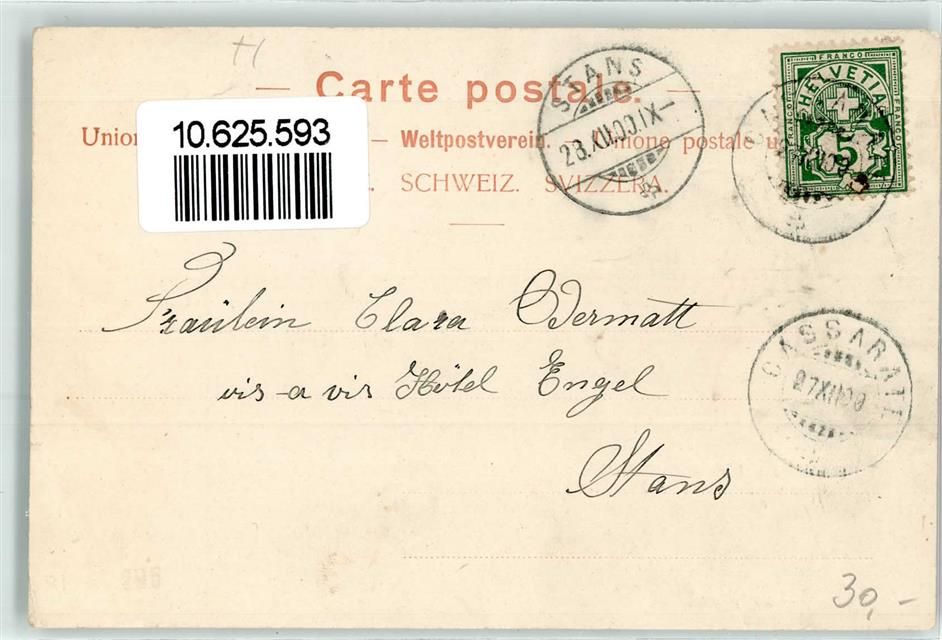 Carte postale.
10.625.593
Union — Weltpostverein. — Unione postale u
SCHWEIZ. SVIZZERA.
STANS
28.XII.00.IX
FRANCO
HELVETIA
FRANCO
FRANCO
5
CASSARATE
27.XII.00
Fräulein Clara Odermatt
vis-a vis Hôtel Engel
Stans
30,-